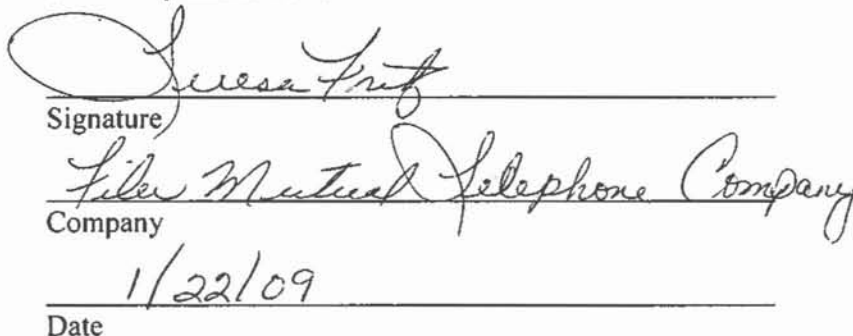 Teresa Fritz
Signature
Filer Mutual Telephone Company
Company
1/22/09
Date